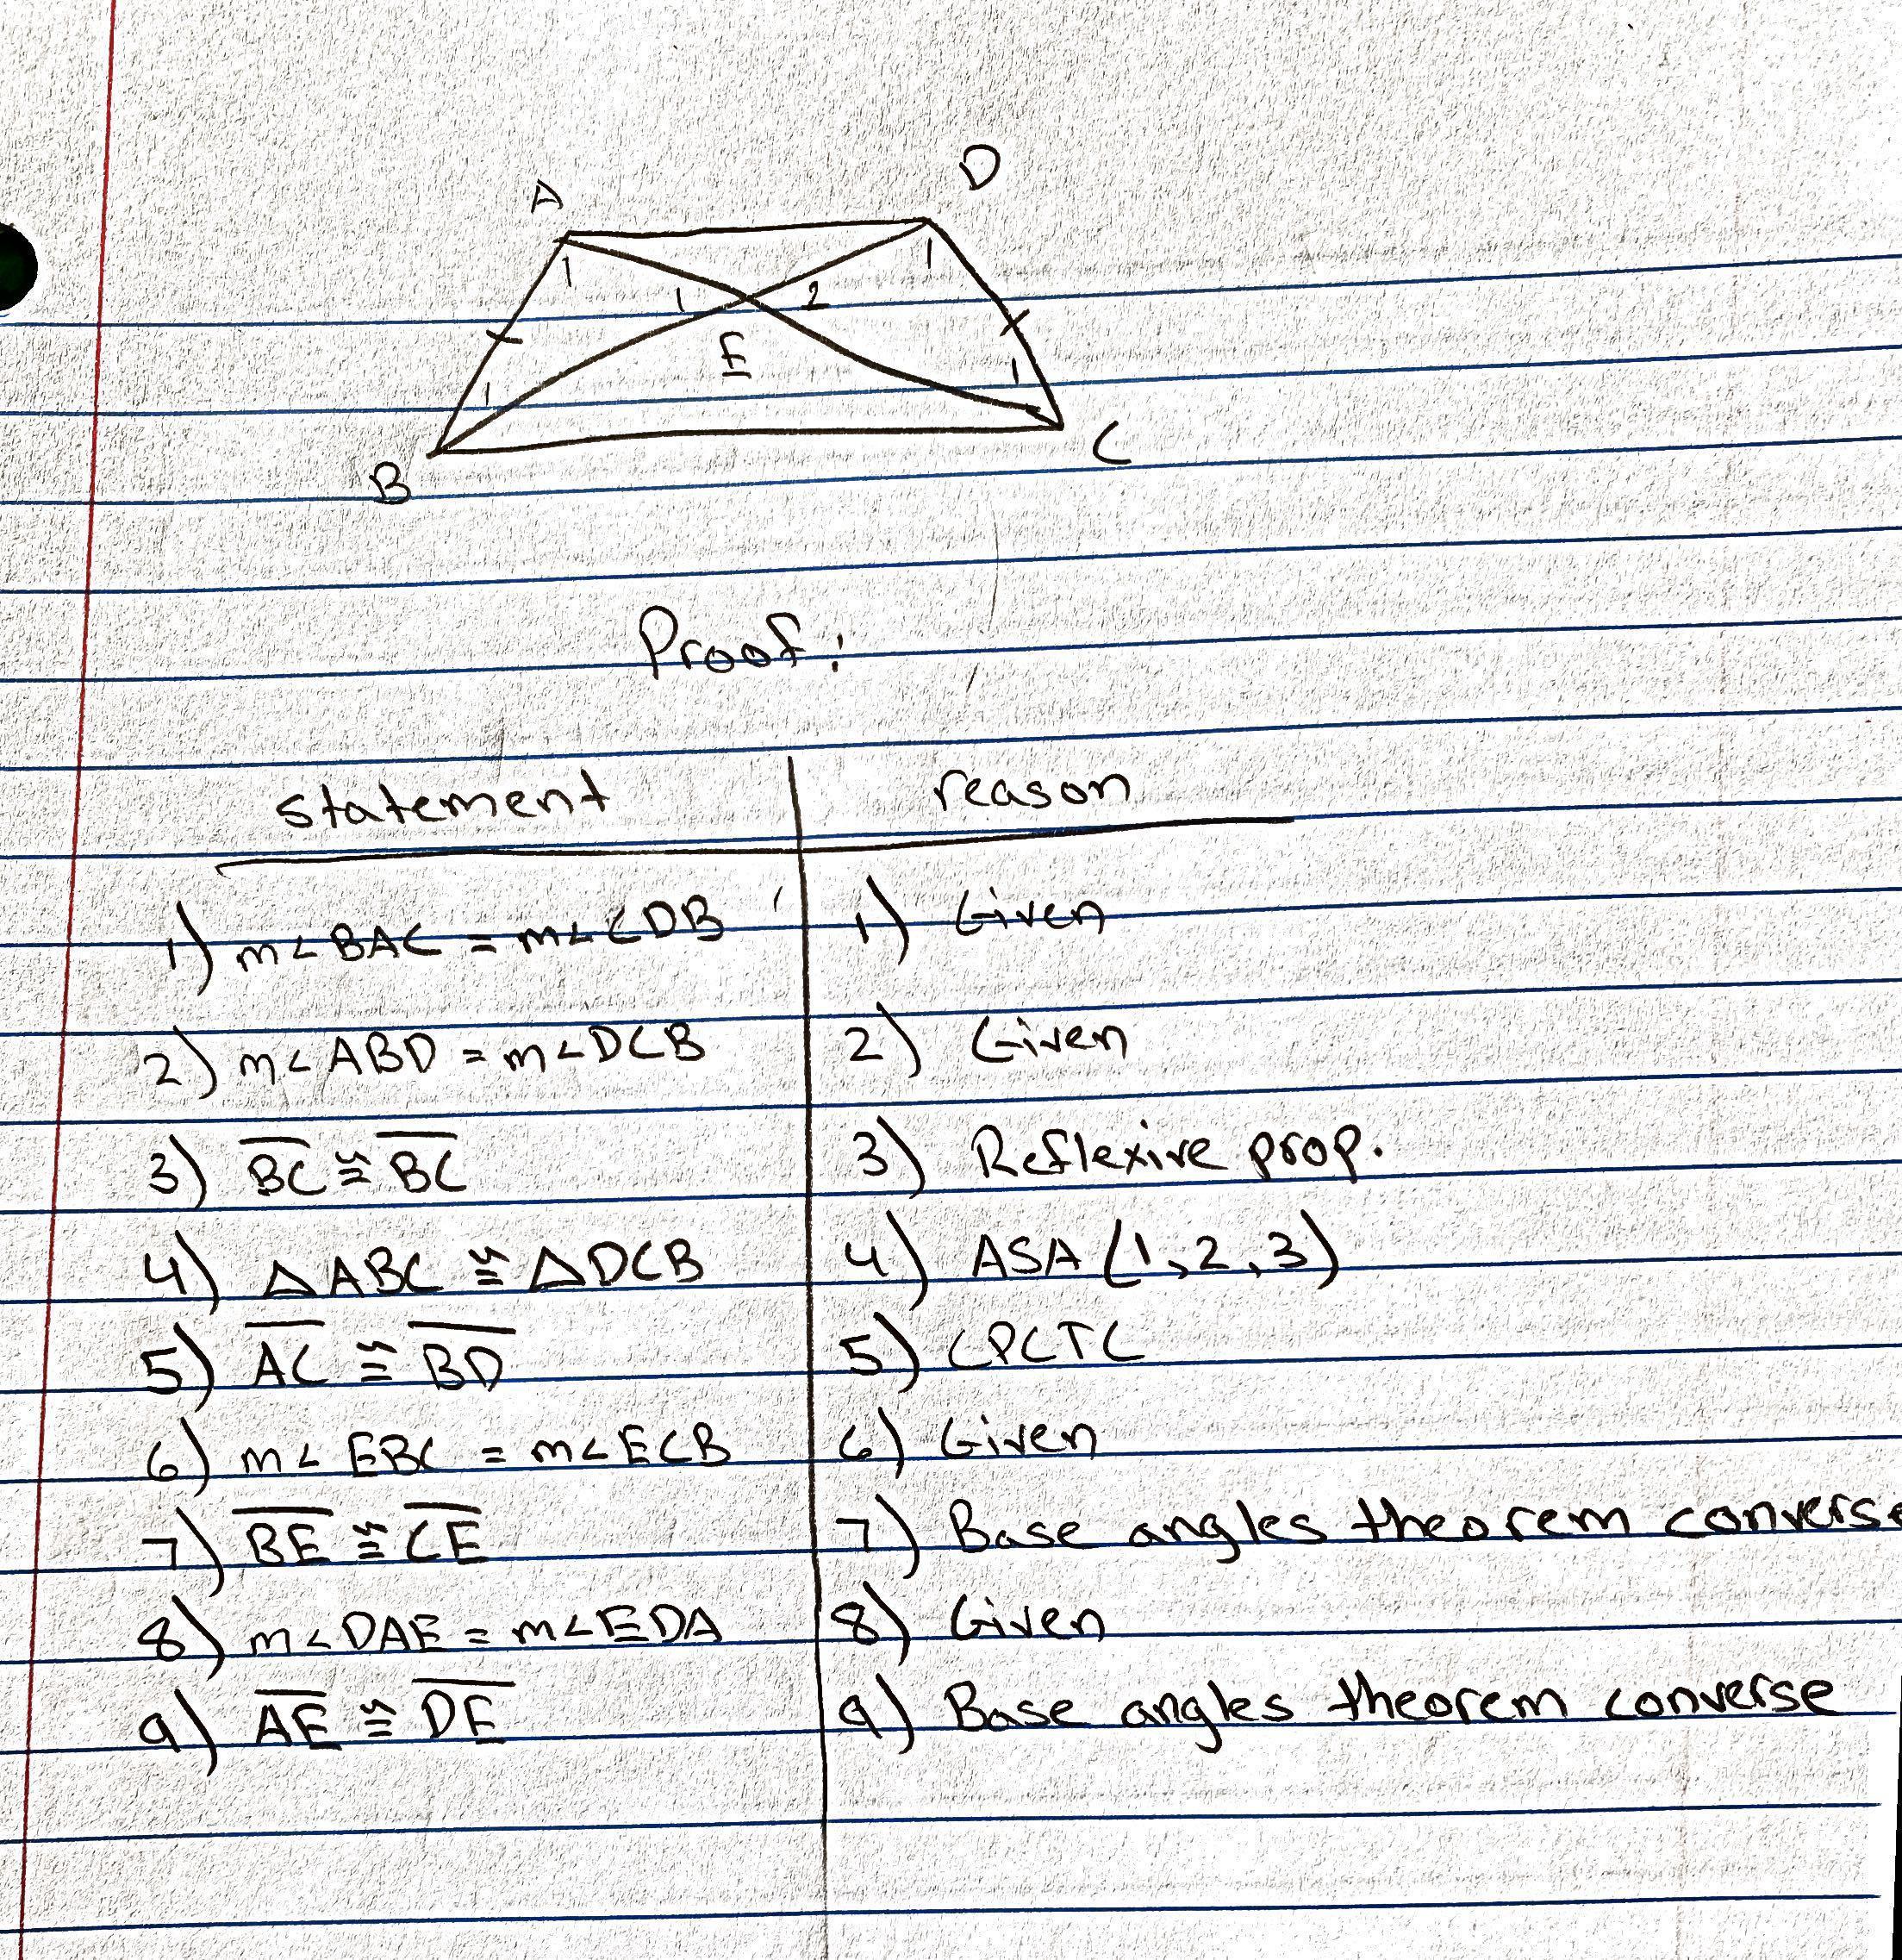 A D
1 1 2 1
E
1 1
B C
Proof:
statement reason
1) m∠BAC = m∠CDB 1) Given
2) m∠ABD = m∠DCB 2) Given
3) BC ≅ BC 3) Reflexive prop.
4) △ABC ≅ △DCB 4) ASA (1,2,3)
5) AC ≅ BD 5) CPCTC
6) m∠EBC = m∠ECB 6) Given
7) BE ≅ CE 7) Base angles theorem converse
8) m∠DAE = m∠EDA 8) Given
9) AE ≅ DE 9) Base angles theorem converse